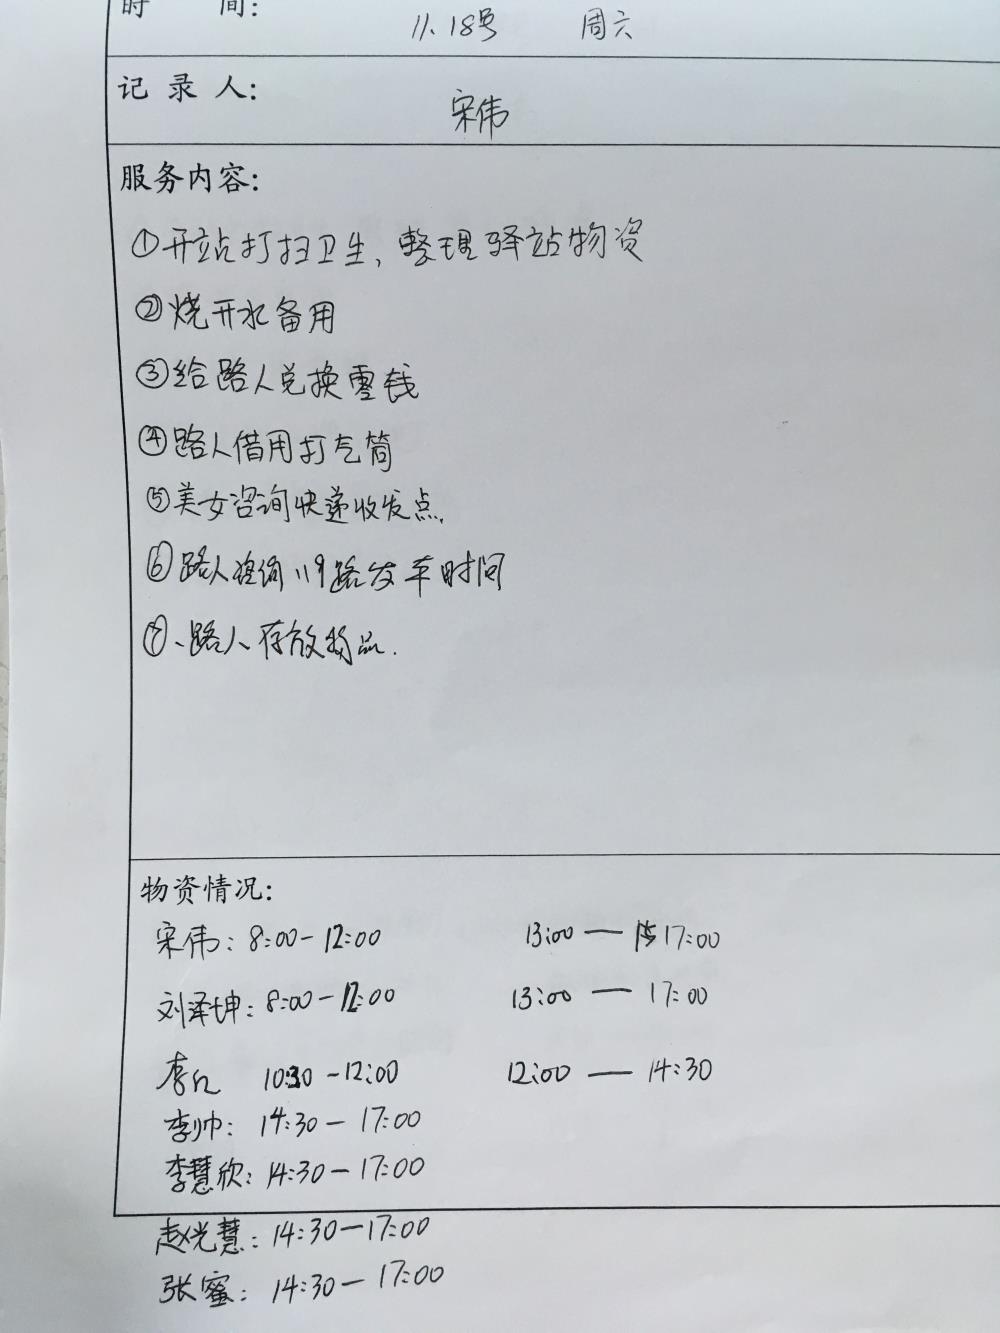 时 间: 11.18号 周六
记 录 人: 宋伟
服务内容:
①开站打扫卫生、整理驿站物资
②烧开水备用
③给路人兑换零钱
④路人借用打气筒
⑤美女咨询快递收发点.
⑥路人咨询119路发车时间
⑦、路人存放物品.
物资情况:
宋伟: 8:00-12:00 13:00—17:00
刘泽坤: 8:00-12:00 13:00—17:00
李 10:30-12:00 12:00—14:30
李帅: 14:30-17:00
李慧欣: 14:30-17:00
赵光慧: 14:30-17:00
张蜜: 14:30-17:00